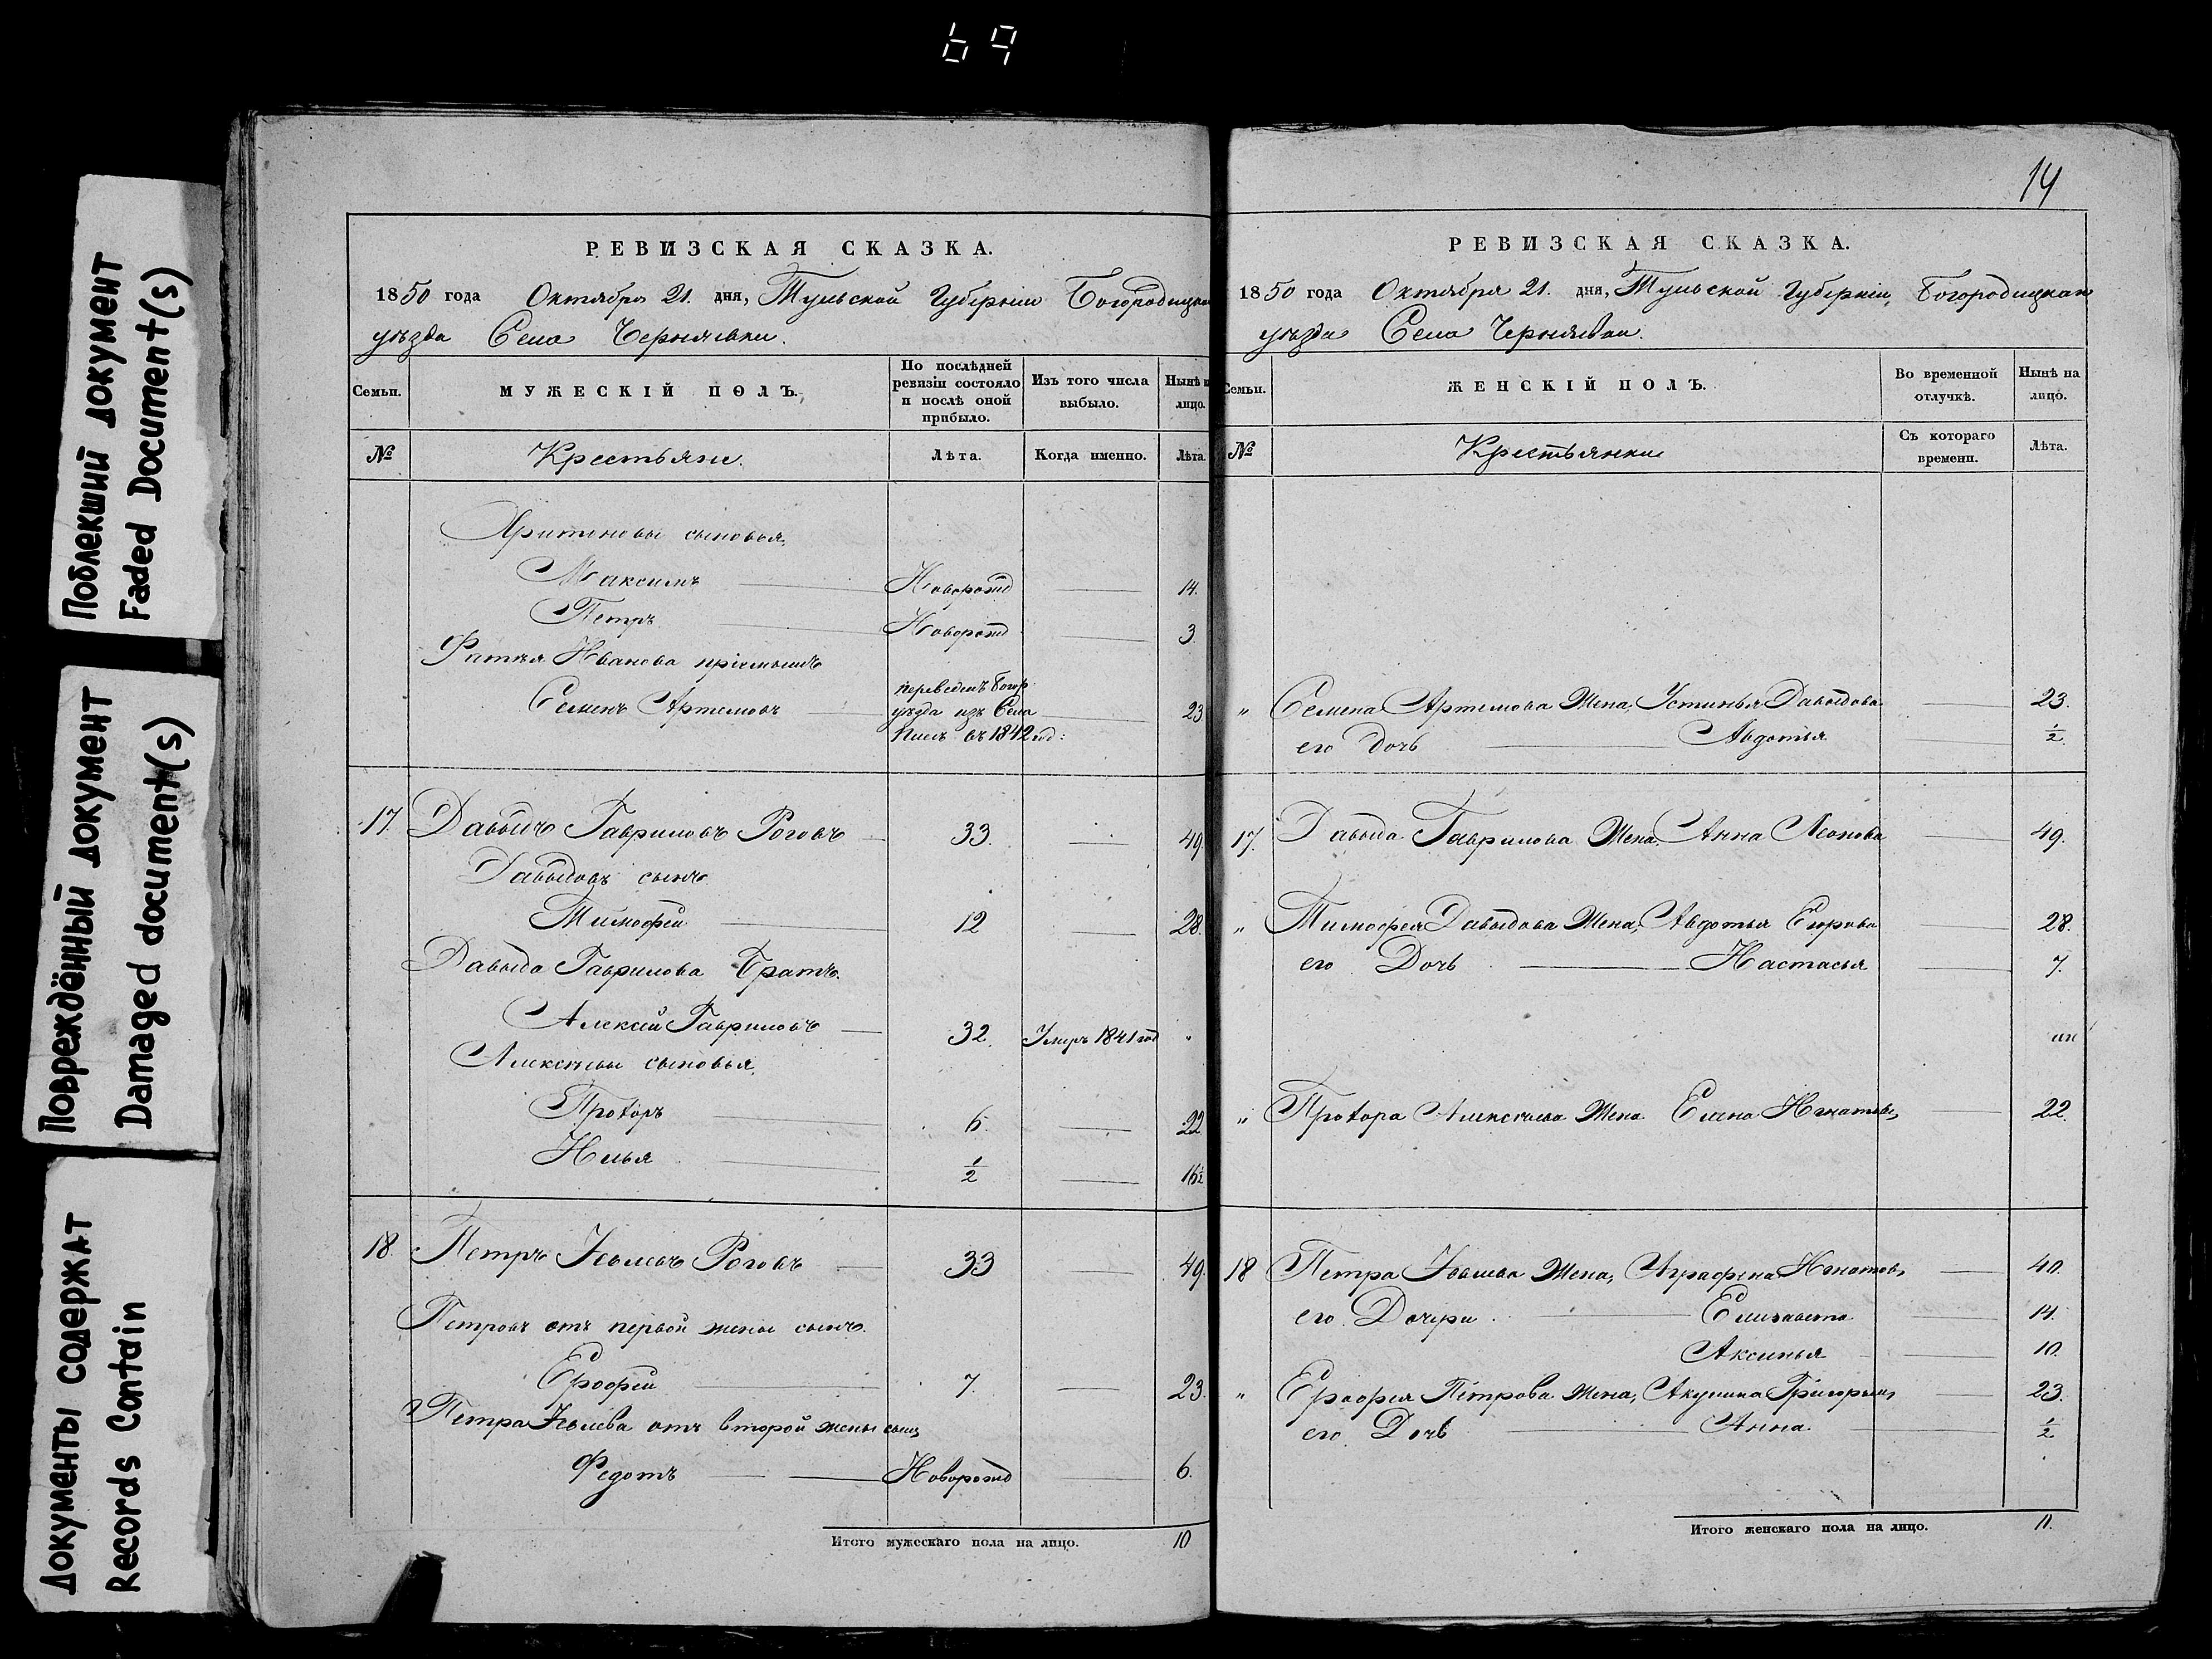 69
Поблекший документ
Faded Document(s)
Повреждённый документ
Damaged document(s)
Документы содержат
Records Contain
РЕВИЗСКАЯ СКАЗКА.
1850 года Октября 21. дня, Тульской Губерніи Богородицкаго
уѣзда Села Чернявки.
Семьи.
МУЖЕСКІЙ ПОЛЪ.
По послѣдней ревизіи состояло и послѣ оной прибыло.
Изъ того числа выбыло.
Нынѣ на лицо.
№
Крестьяне.
Лѣта.
Когда именно.
Лѣта.
сыновья,
Максимъ Новорожд 14.
Петръ Новорожд 3.
Иванова пріемышъ
Семенъ Артемовъ переведенъ Богор 23
уѣзда изъ Села
въ 1842 год:
17. Давыдъ Гавриловъ Роговъ 33. 49.
Давыдовъ сынъ
Тимофей 12 28.
Давыда Гаврилова Братъ.
Алексѣй Гавриловъ 32. Умеръ 1841 год "
Алексѣевы сыновья,
Проторъ 6. 22
Илья ½ 16½
18. Петръ Роговъ 33 49.
Петровъ отъ первой жены сынъ.
Ерофей 7. 23.
Петра отъ второй жены сынъ
Федотъ Новорожд 6.
Итого мужескаго пола на лицо. 10
14
РЕВИЗСКАЯ СКАЗКА.
1850 года Октября 21. дня, Тульской Губерніи, Богородицкаго
уѣзда Села Чернявки.
Семьи.
ЖЕНСКІЙ ПОЛЪ.
Во временной отлучкѣ.
Нынѣ на лицо.
№
Крестьянки
Съ котораго времени.
Лѣта.
" Семена Артемова Жена, Устинья Давыдова 23.
его дочь Авдотья ½.
17. Давыда Гаврилова Жена, Анна Леонова 49.
" Тимофея Давыдова Жена, Авдотья Егорова 28.
его Дочь Настасья 7.
" Протора Алексѣева Жена Елена Игнатова 22.
18 Петра Жена, Аграфена Игнатова 40.
его Дочери Елизавета 14.
Аксинья 10.
" Ерофея Петрова Жена, Акулина Григорьева 23.
его Дочь Анна. ½
Итого женскаго пола на лицо. 11.